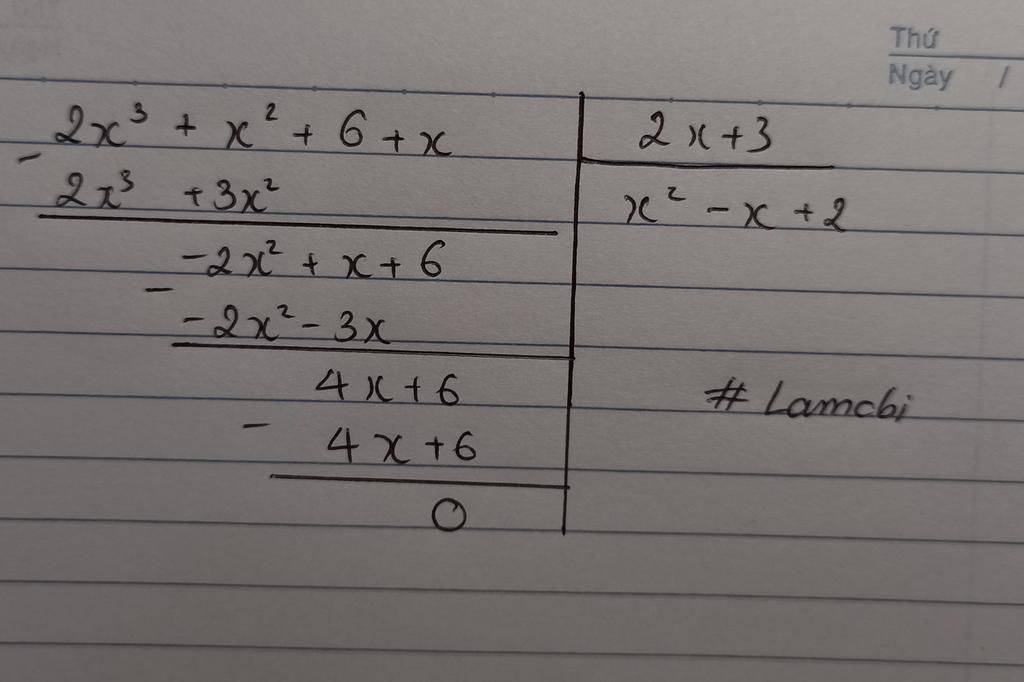 Thứ
Ngày /
2x³ + x² + 6 + x 2x + 3
- 2x³ + 3x² x² - x + 2
-2x² + x + 6
- -2x² - 3x
4x + 6 # Lamchi
- 4x + 6
0